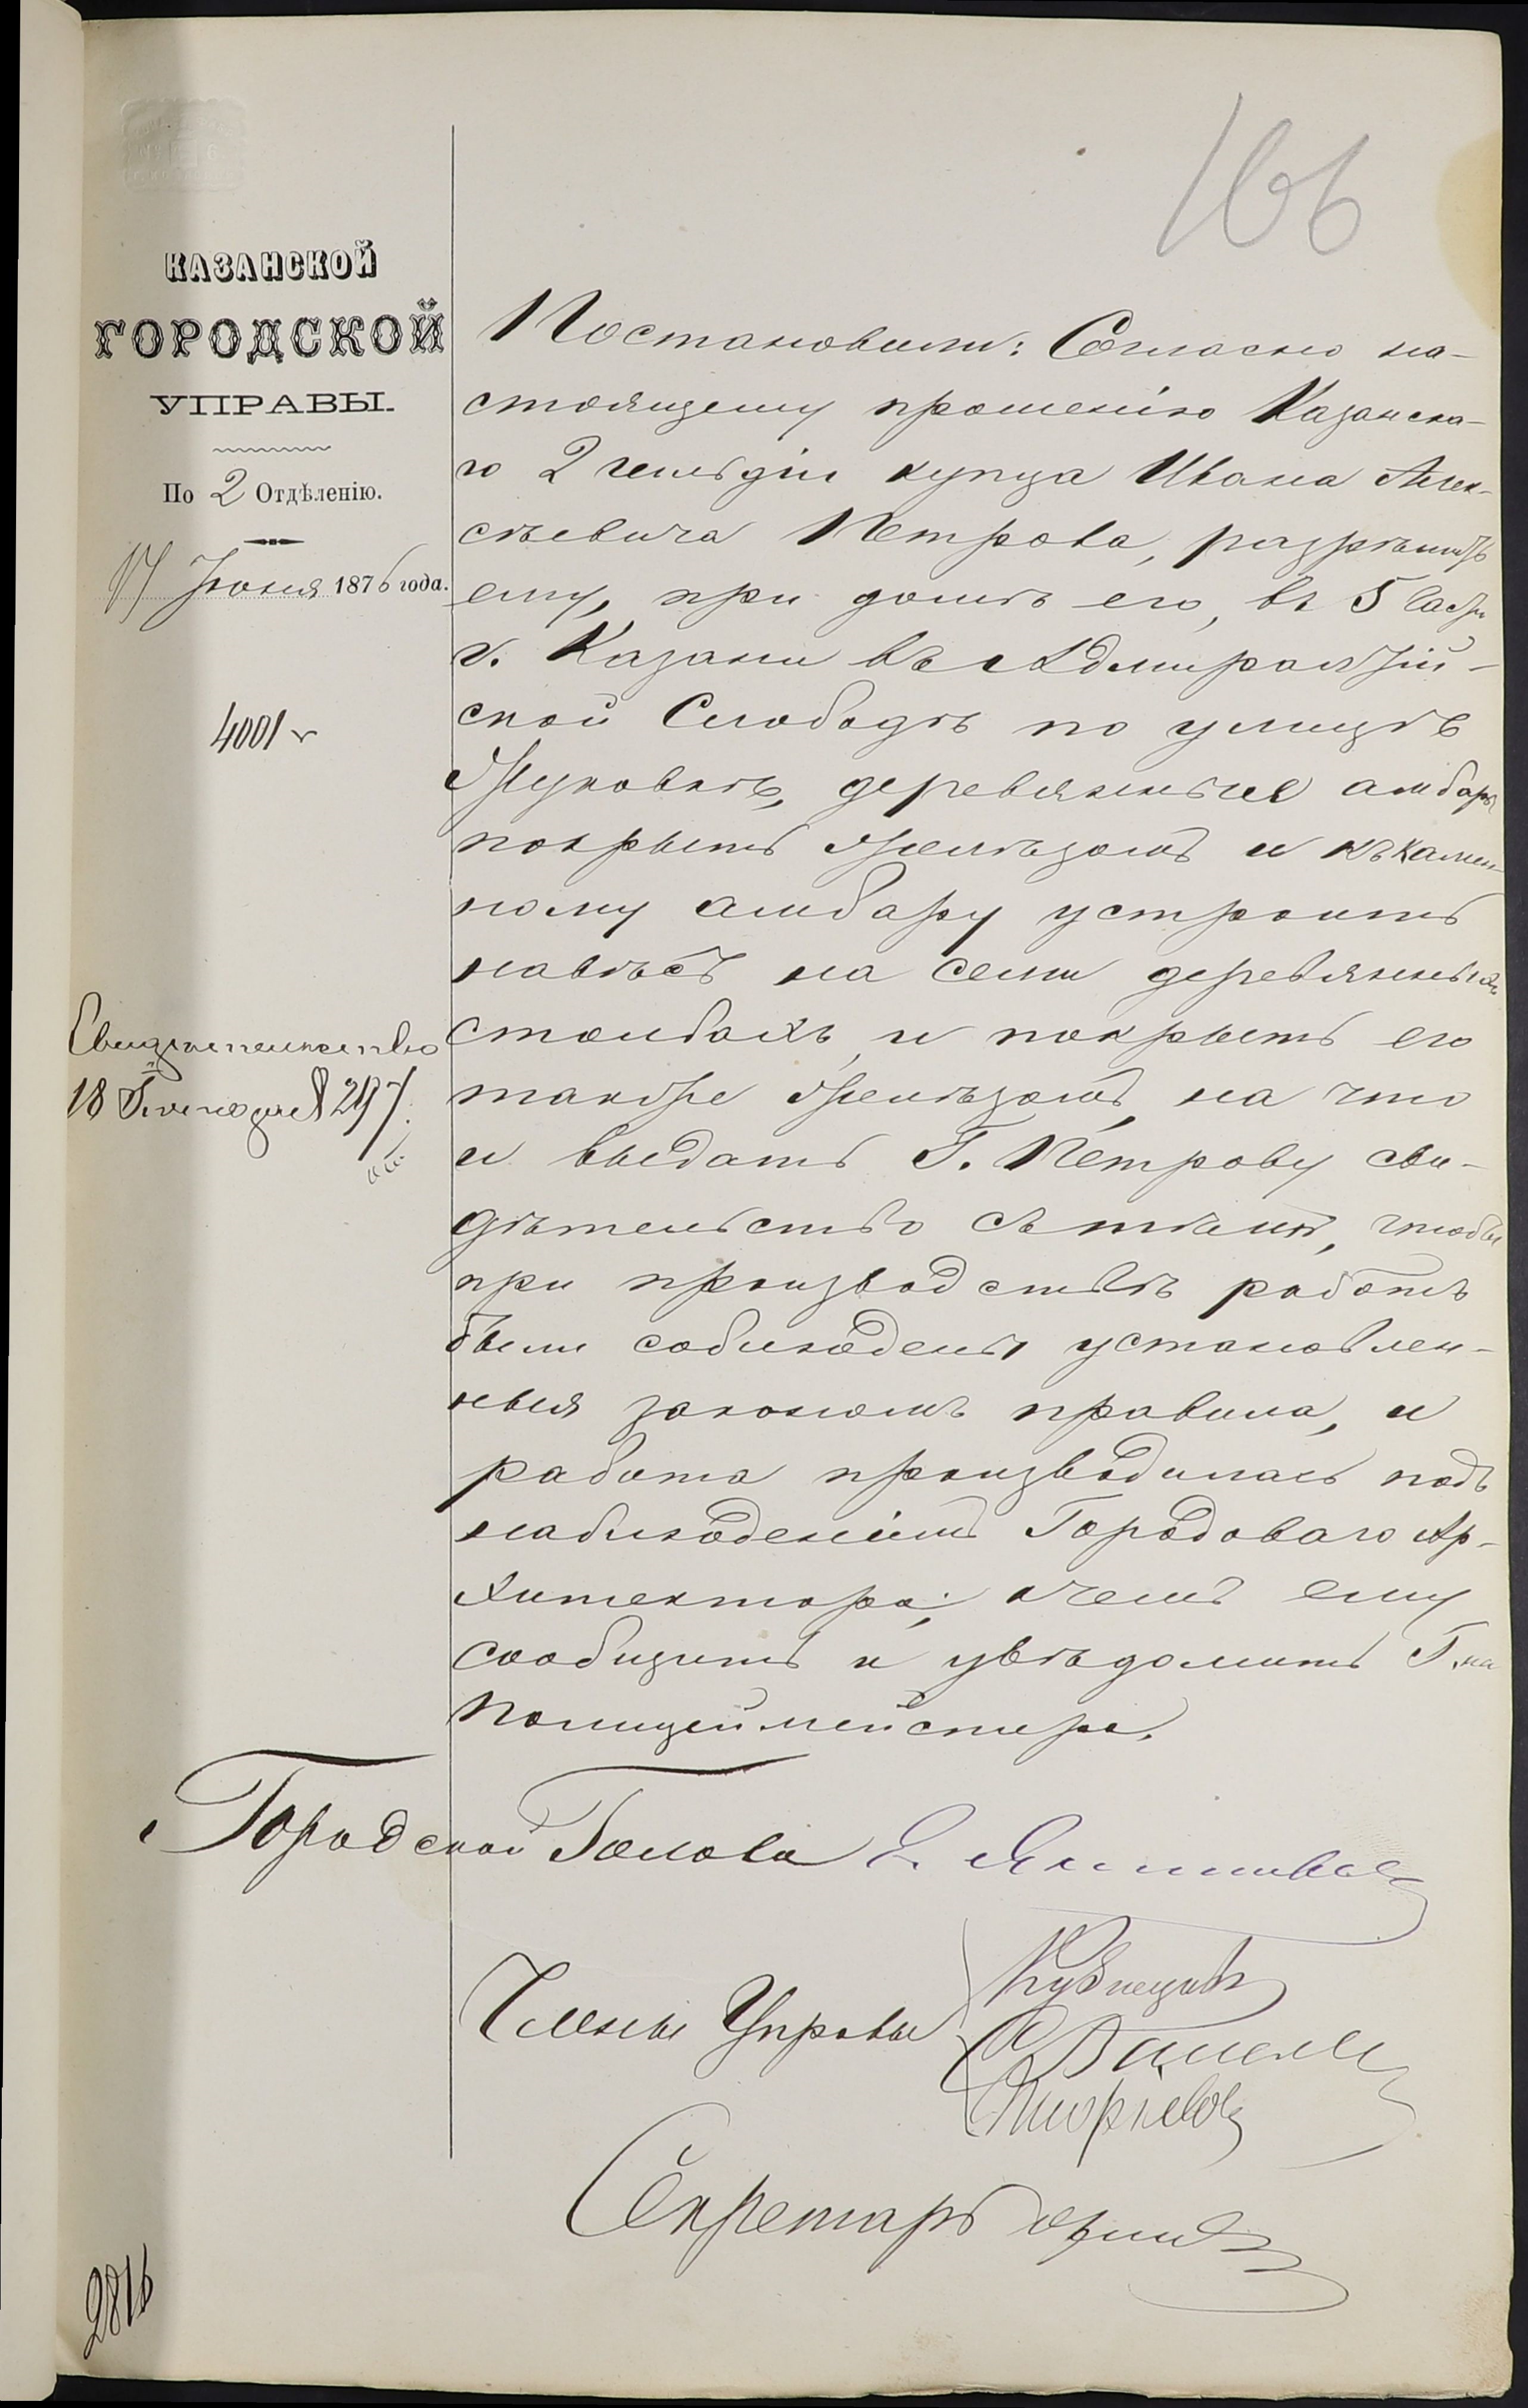 166
КАЗАНСКОЙ
ГОРОДСКОЙ
УПРАВЫ.
По 2 Отдѣленію.
17 Іюня 1876 года.
4001
Свидѣтельство
18 Іюня 297
Постановили: Согласно на-
стоящему прошенію Казанска-
го 2 гильдіи купца Ивана Алек-
сѣевича Петрова, разрѣшить
ему, при домѣ его, въ 5 части
г. Казани въ Адмиралтій-
ской Слободѣ по улицѣ
деревянные амбары
покрыть желѣзомъ и къ камен-
ному амбару устроить
навѣсъ на семи деревянныхъ
столбахъ, и покрыть его
также желѣзомъ, на что
и выдать Г. Петрову сви-
дѣтельство съ тѣмъ, чтобы
при производствѣ работъ
были соблюдены установлен-
ныя закономъ правила, и
работа производилась подъ
наблюденіемъ Городоваго Ар-
хитектора; о чемъ ему
сообщить и увѣдомить Г.на
Полицеймейстера.
Городской Голова
Члены Управы
Кузнецовъ
Секретарь
2816